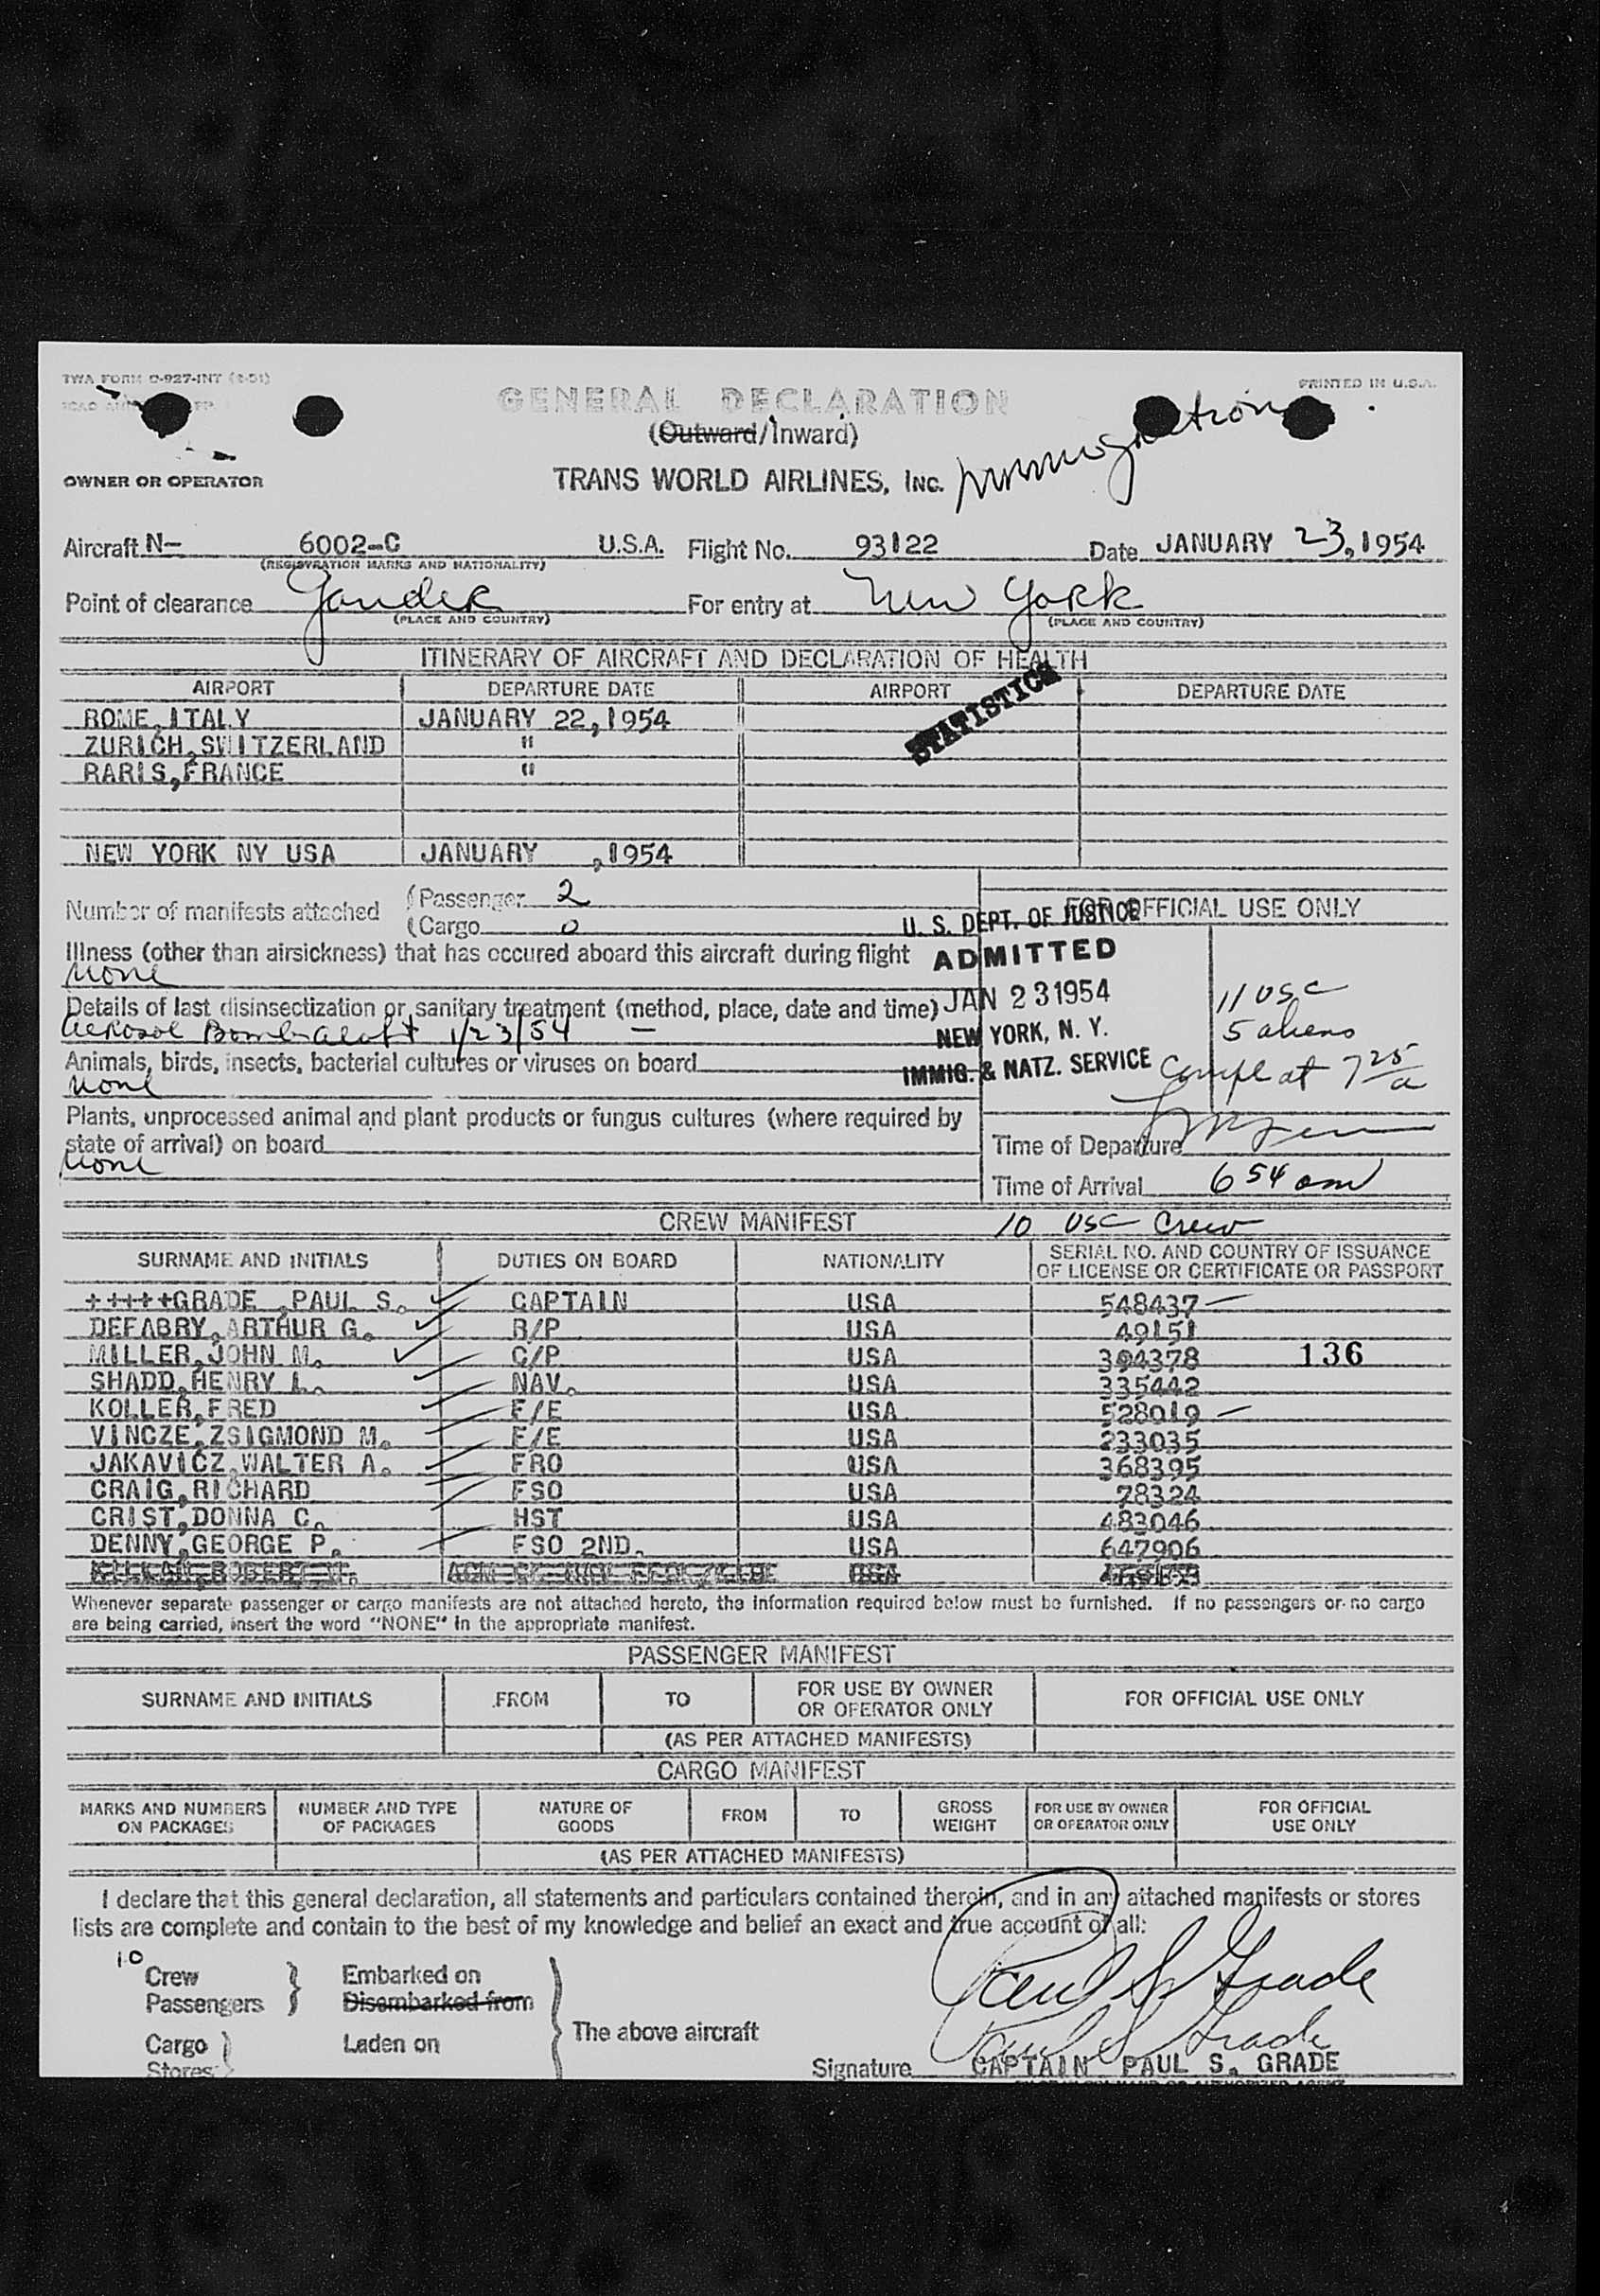 TWA FORM C-927-INT (2-51)
PRINTED IN U.S.A.
GENERAL DECLARATION
(Outward/Inward)
OWNER OR OPERATOR
TRANS WORLD AIRLINES, INC. Immigration
Aircraft N- 6002-C U.S.A. Flight No. 93122 Date JANUARY 23, 1954
(REGISTRATION MARKS AND NATIONALITY)
Point of clearance Gander For entry at New York
(PLACE AND COUNTRY) (PLACE AND COUNTRY)
ITINERARY OF AIRCRAFT AND DECLARATION OF HEALTH
AIRPORT DEPARTURE DATE AIRPORT DEPARTURE DATE
STATISTICS
ROME, ITALY JANUARY 22, 1954
ZURICH, SWITZERLAND "
RARIS, FRANCE "
NEW YORK NY USA JANUARY , 1954
Number of manifests attached (Passenger 2
(Cargo 0
FOR OFFICIAL USE ONLY
U. S. DEPT. OF JUSTICE
ADMITTED
JAN 23 1954
NEW YORK, N. Y.
IMMIG. & NATZ. SERVICE
11 USC
5 aliens
Compl at 7 25 a
Illness (other than airsickness) that has occured aboard this aircraft during flight
None
Details of last disinsectization or sanitary treatment (method, place, date and time)
Aerosol Bomb Aloft 1/23/54 —
Animals, birds, insects, bacterial cultures or viruses on board
None
Plants, unprocessed animal and plant products or fungus cultures (where required by
state of arrival) on board
None
Time of Departure
Time of Arrival 6 54 am
CREW MANIFEST 10 USC Crew
SURNAME AND INITIALS DUTIES ON BOARD NATIONALITY SERIAL NO. AND COUNTRY OF ISSUANCE
OF LICENSE OR CERTIFICATE OR PASSPORT
+++++GRADE ,PAUL S. CAPTAIN USA 548437
DEFABRY, ARTHUR G. R/P USA 49151
MILLER, JOHN M. C/P USA 394378 136
SHADD, HENRY L. NAV. USA 335442
KOLLER, FRED F/E USA 528019
VINCZE, ZSIGMOND M. F/E USA 233035
JAKAVICZ, WALTER A. FRO USA 368395
CRAIG, RICHARD FSO USA 78324
CRIST, DONNA C. HST USA 483046
DENNY, GEORGE P. FSO 2ND. USA 647906
Whenever separate passenger or cargo manifests are not attached hereto, the information required below must be furnished. If no passengers or no cargo
are being carried, insert the word "NONE" in the appropriate manifest.
PASSENGER MANIFEST
SURNAME AND INITIALS FROM TO FOR USE BY OWNER
OR OPERATOR ONLY FOR OFFICIAL USE ONLY
(AS PER ATTACHED MANIFESTS)
CARGO MANIFEST
MARKS AND NUMBERS
ON PACKAGES NUMBER AND TYPE
OF PACKAGES NATURE OF
GOODS FROM TO GROSS
WEIGHT FOR USE BY OWNER
OR OPERATOR ONLY FOR OFFICIAL
USE ONLY
(AS PER ATTACHED MANIFESTS)
I declare that this general declaration, all statements and particulars contained therein, and in any attached manifests or stores
lists are complete and contain to the best of my knowledge and belief an exact and true account of all:
10
Crew Embarked on
Passengers Disembarked from
The above aircraft
Cargo Laden on
Stores
Paul S Grade
Paul S Grade
Signature CAPTAIN PAUL S. GRADE